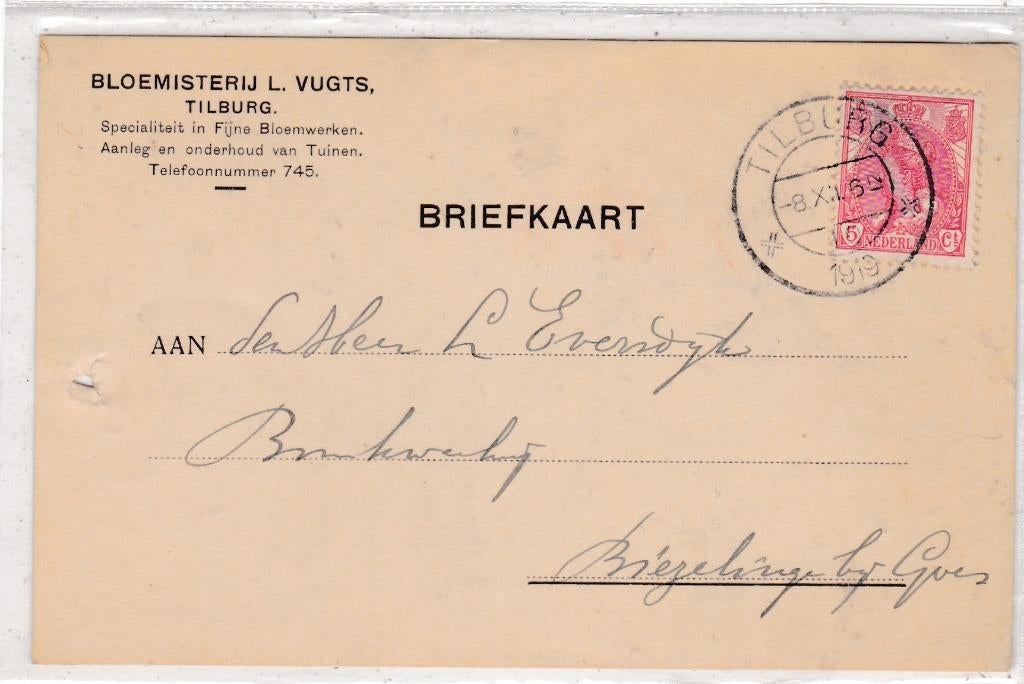 BLOEMISTERIJ L. VUGTS,
TILBURG.
Specialiteit in Fijne Bloemwerken.
Aanleg en onderhoud van Tuinen.
Telefoonnummer 745.
BRIEFKAART
TILBURG
-8.XII. 6-7N
1919
5 NEDERLAND Ct
AAN den Heer L Eversdyk
Boomkweekery
Biezelinge by Goes